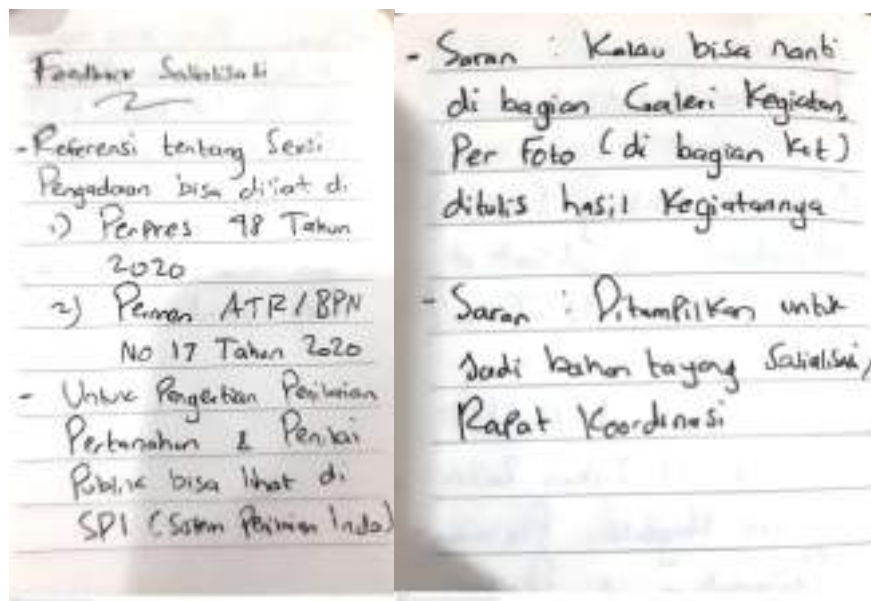 Feedback Sosialisasi
- Referensi tentang Seksi
Pengadaan bisa diliat di
1.) Perpres 48 Tahun
2020
2) Permen ATR/BPN
No 17 Tahun 2020
- Untuk Pengertian Penilaian
Pertanahan & Penilai
Publik bisa lihat di
SPI (Sistem Penilaian Indo)
- Saran : Kalau bisa nanti
di bagian Galeri Kegiatan,
Per Foto (di bagian Ket)
ditulis hasil Kegiatannya
- Saran : Ditampilkan untuk
Jadi bahan tayang Sosialisasi,
Rapat Koordinasi